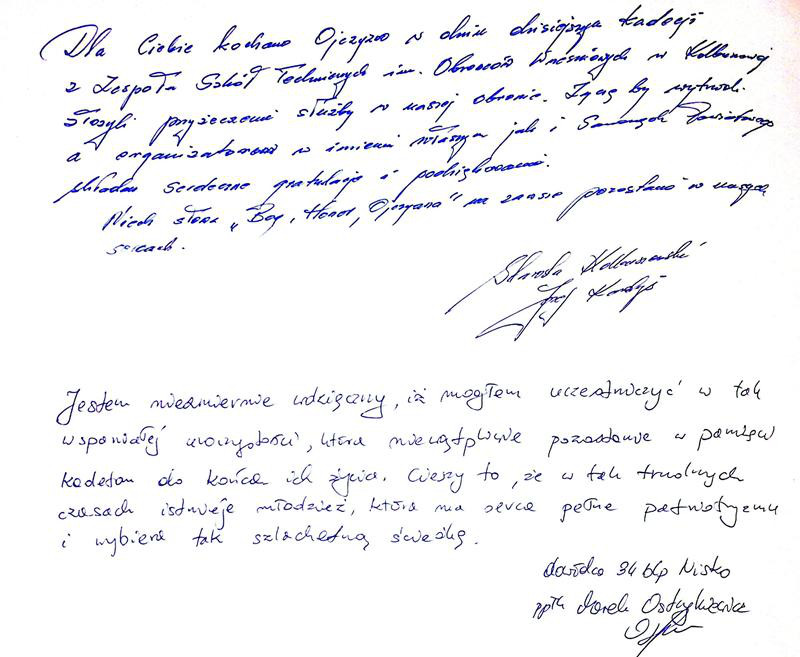 Dla Ciebie kochana Ojczyzno w dniu dzisiejszym kadeci
z Zespołu Szkół Technicznych im. Obrońców Września w Kolbuszowej
złożyli przyrzeczenie służby w naszej obronie. Życzę by wytrwali.
a organizatorom w imieniu własnym jak i Samorządu Powiatowego
składam serdeczne gratulacje i podziękowania.
Niech słowa "Bóg, Honor, Ojczyzna" na zawsze pozostaną w naszych
sercach.
Starosta Kolbuszowski
Józef Kardyś
Jestem niezmiernie wdzięczny, iż mogłem uczestniczyć w tak
wspaniałej uroczystości, która niewątpliwie pozostanie w pamięci
kadetom do końca ich życia. Cieszy to, że w tak trudnych
czasach istnieje młodzież, która ma serca pełne patriotyzmu
i wybiera tak szlachetną ścieżkę.
dowódca 34 blp Nisko
ppłk Marek